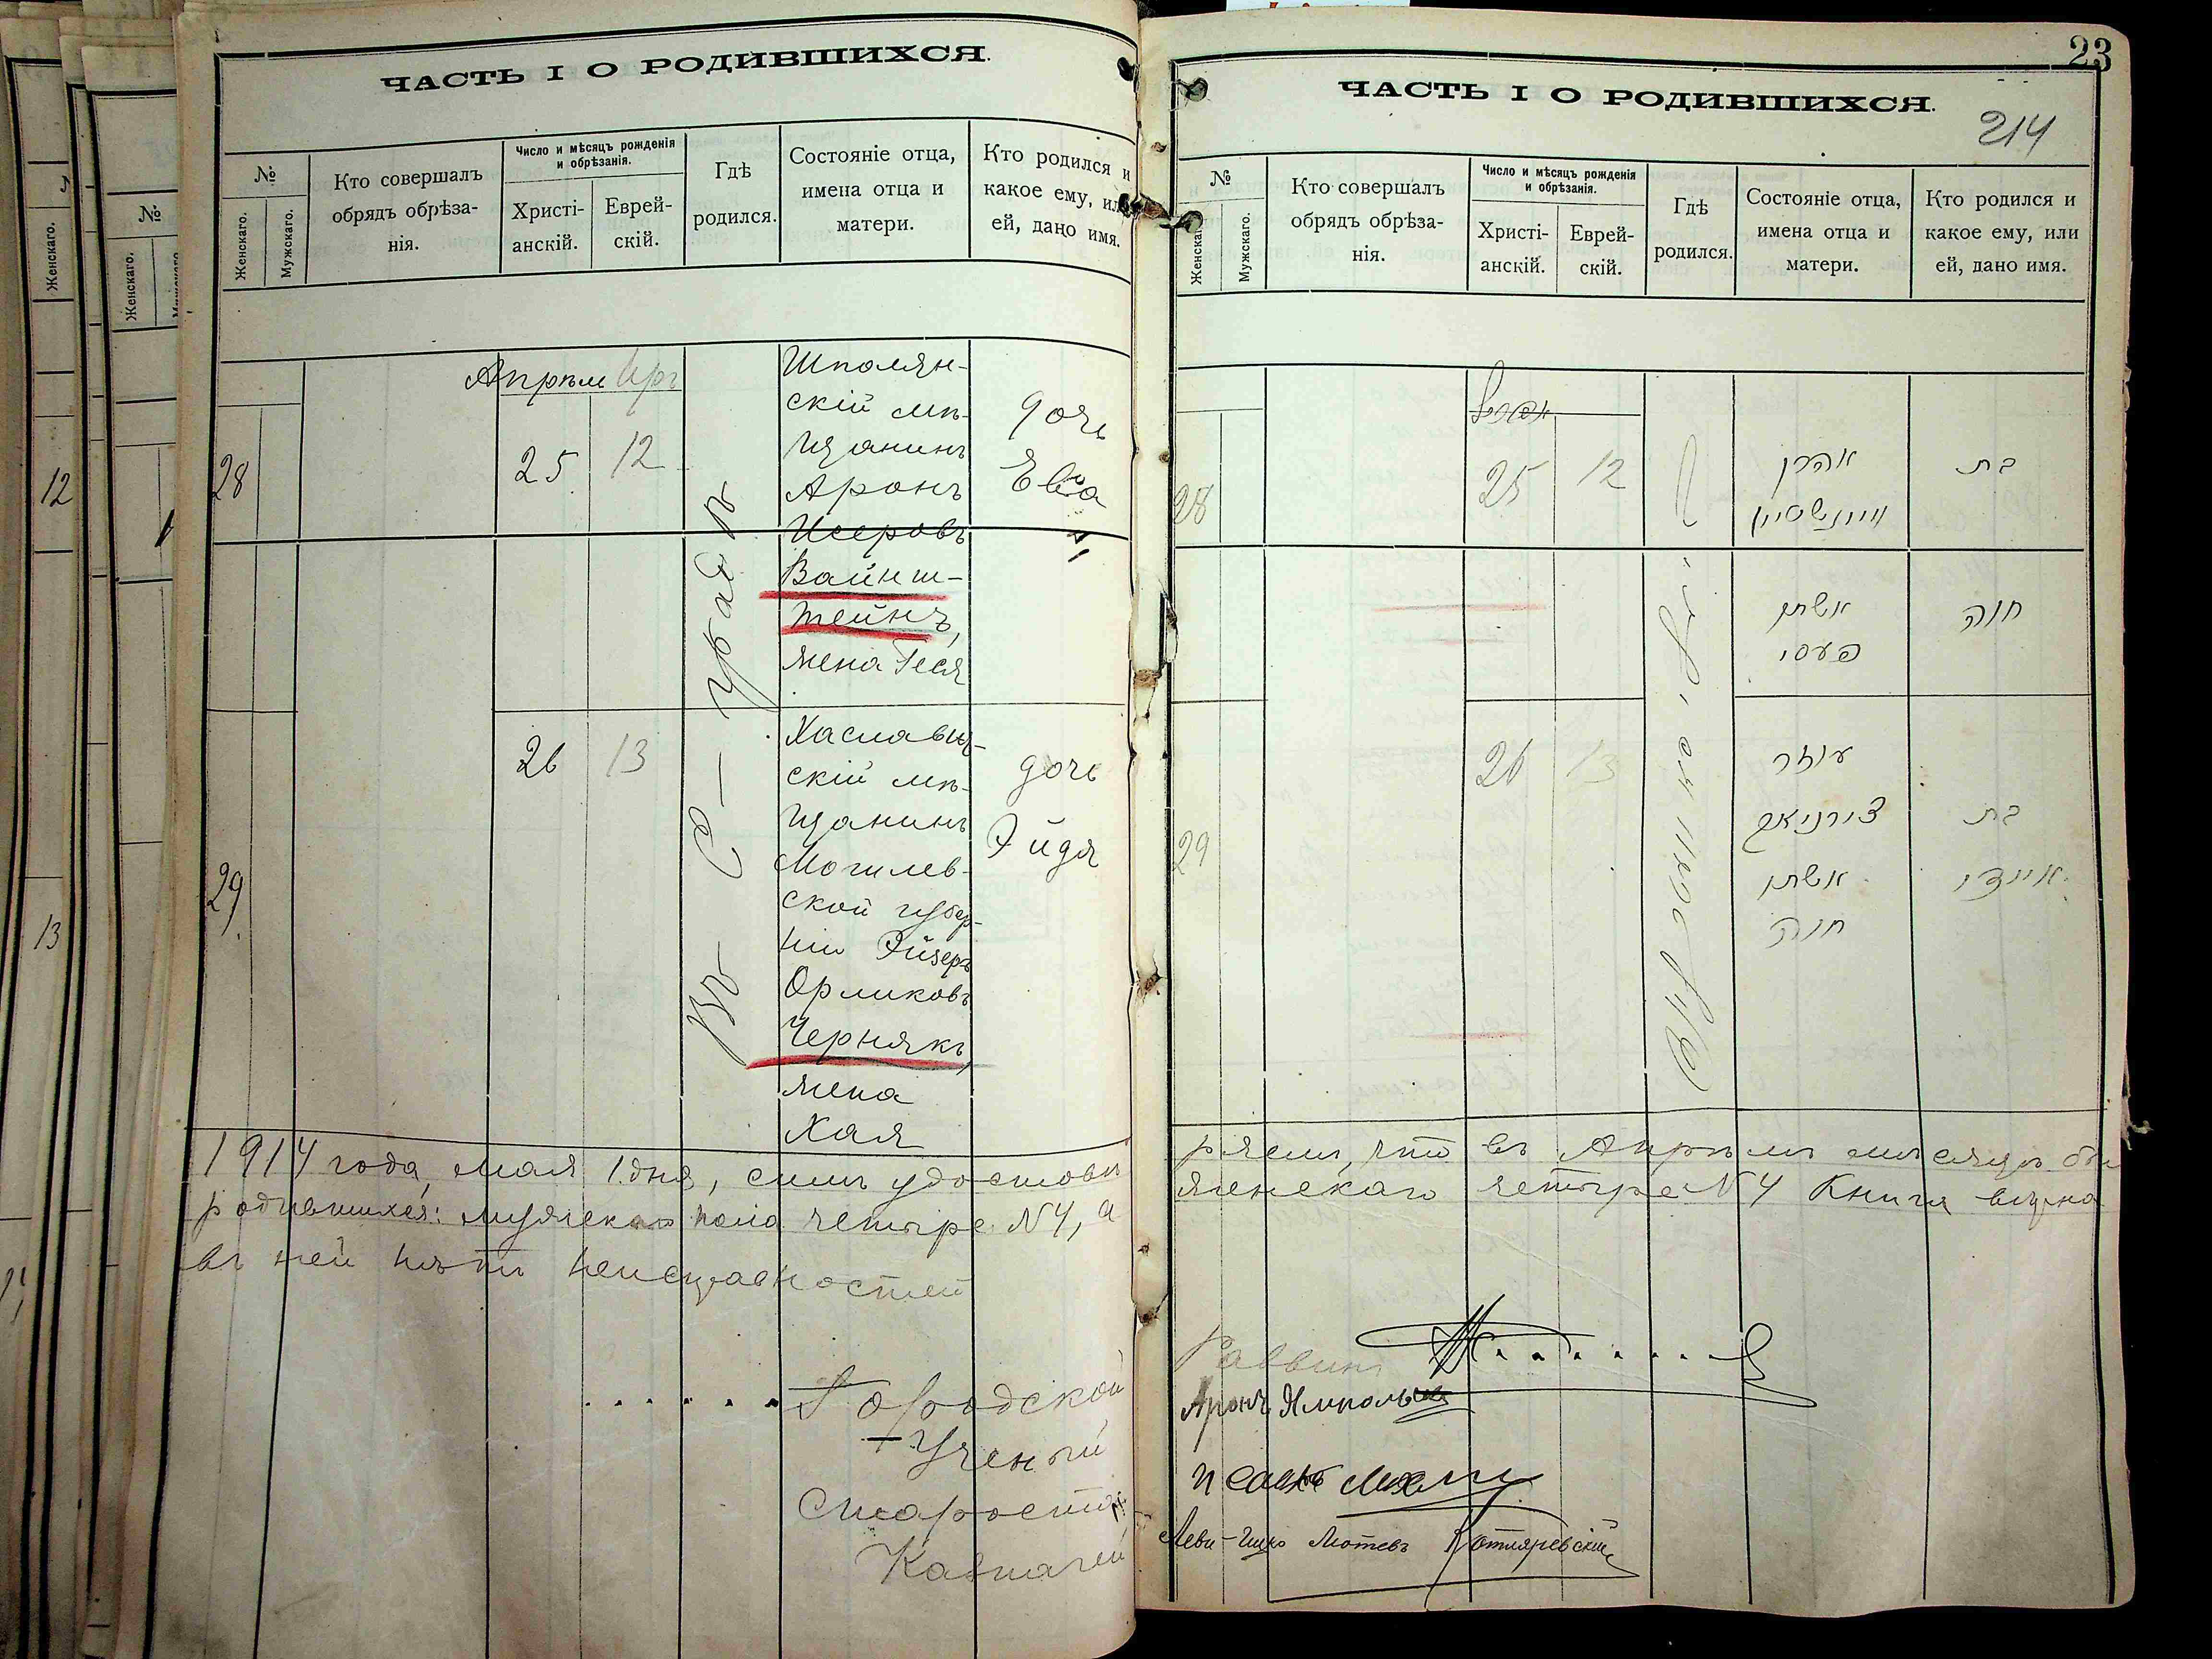 ЧАСТЬ I О РОДИВШИХСЯ.
№
Женскаго.
Мужскаго.
Кто совершалъ
обрядъ обрѣза-
нія.
Число и мѣсяцъ рожденія
и обрѣзанія.
Христі-
анскій.
Еврей-
скій.
Гдѣ
родился.
Состояніе отца,
имена отца и
матери.
Кто родился и
какое ему, или
ей, дано имя.
Апрѣль
28
25
12
Шполян-
скій мѣ-
щанинъ
Аронъ
Исеровъ
Вайнш-
тейнъ,
жена Песя
дочь
Ева
29
26
13
скій мѣ-
щанинъ
Могилев-
ской губер-
ніи Эйзеръ
Орликовъ
Чернякъ,
жена
Хая
дочь
Эйдя
1914 года, мая 1 дня, симъ удостовѣ
родившихся: мужскаго пола четыре №4, а
въ ней нѣтъ неисправностей
Городской
Ученый
Староста
Казначей
23
214
ЧАСТЬ I О РОДИВШИХСЯ.
№
Женскаго.
Мужскаго.
Кто совершалъ
обрядъ обрѣза-
нія.
Число и мѣсяцъ рожденія
и обрѣзанія.
Христі-
анскій.
Еврей-
скій.
Гдѣ
родился.
Состояніе отца,
имена отца и
матери.
Кто родился и
какое ему, или
ей, дано имя.
28
25
12
אהרן
וויינשטיין
אשתו
פעסי
בת
חוה
29
26
13
עוזר
צירניאק
אשתו
חיה
בת
איידי
ряемъ, что въ Апрѣлѣ мѣсяцѣ бы
женскаго четыре №4 Книга
Раввинъ
Аронъ
Леви-Ицко Мотевъ Котляревскій
12
13